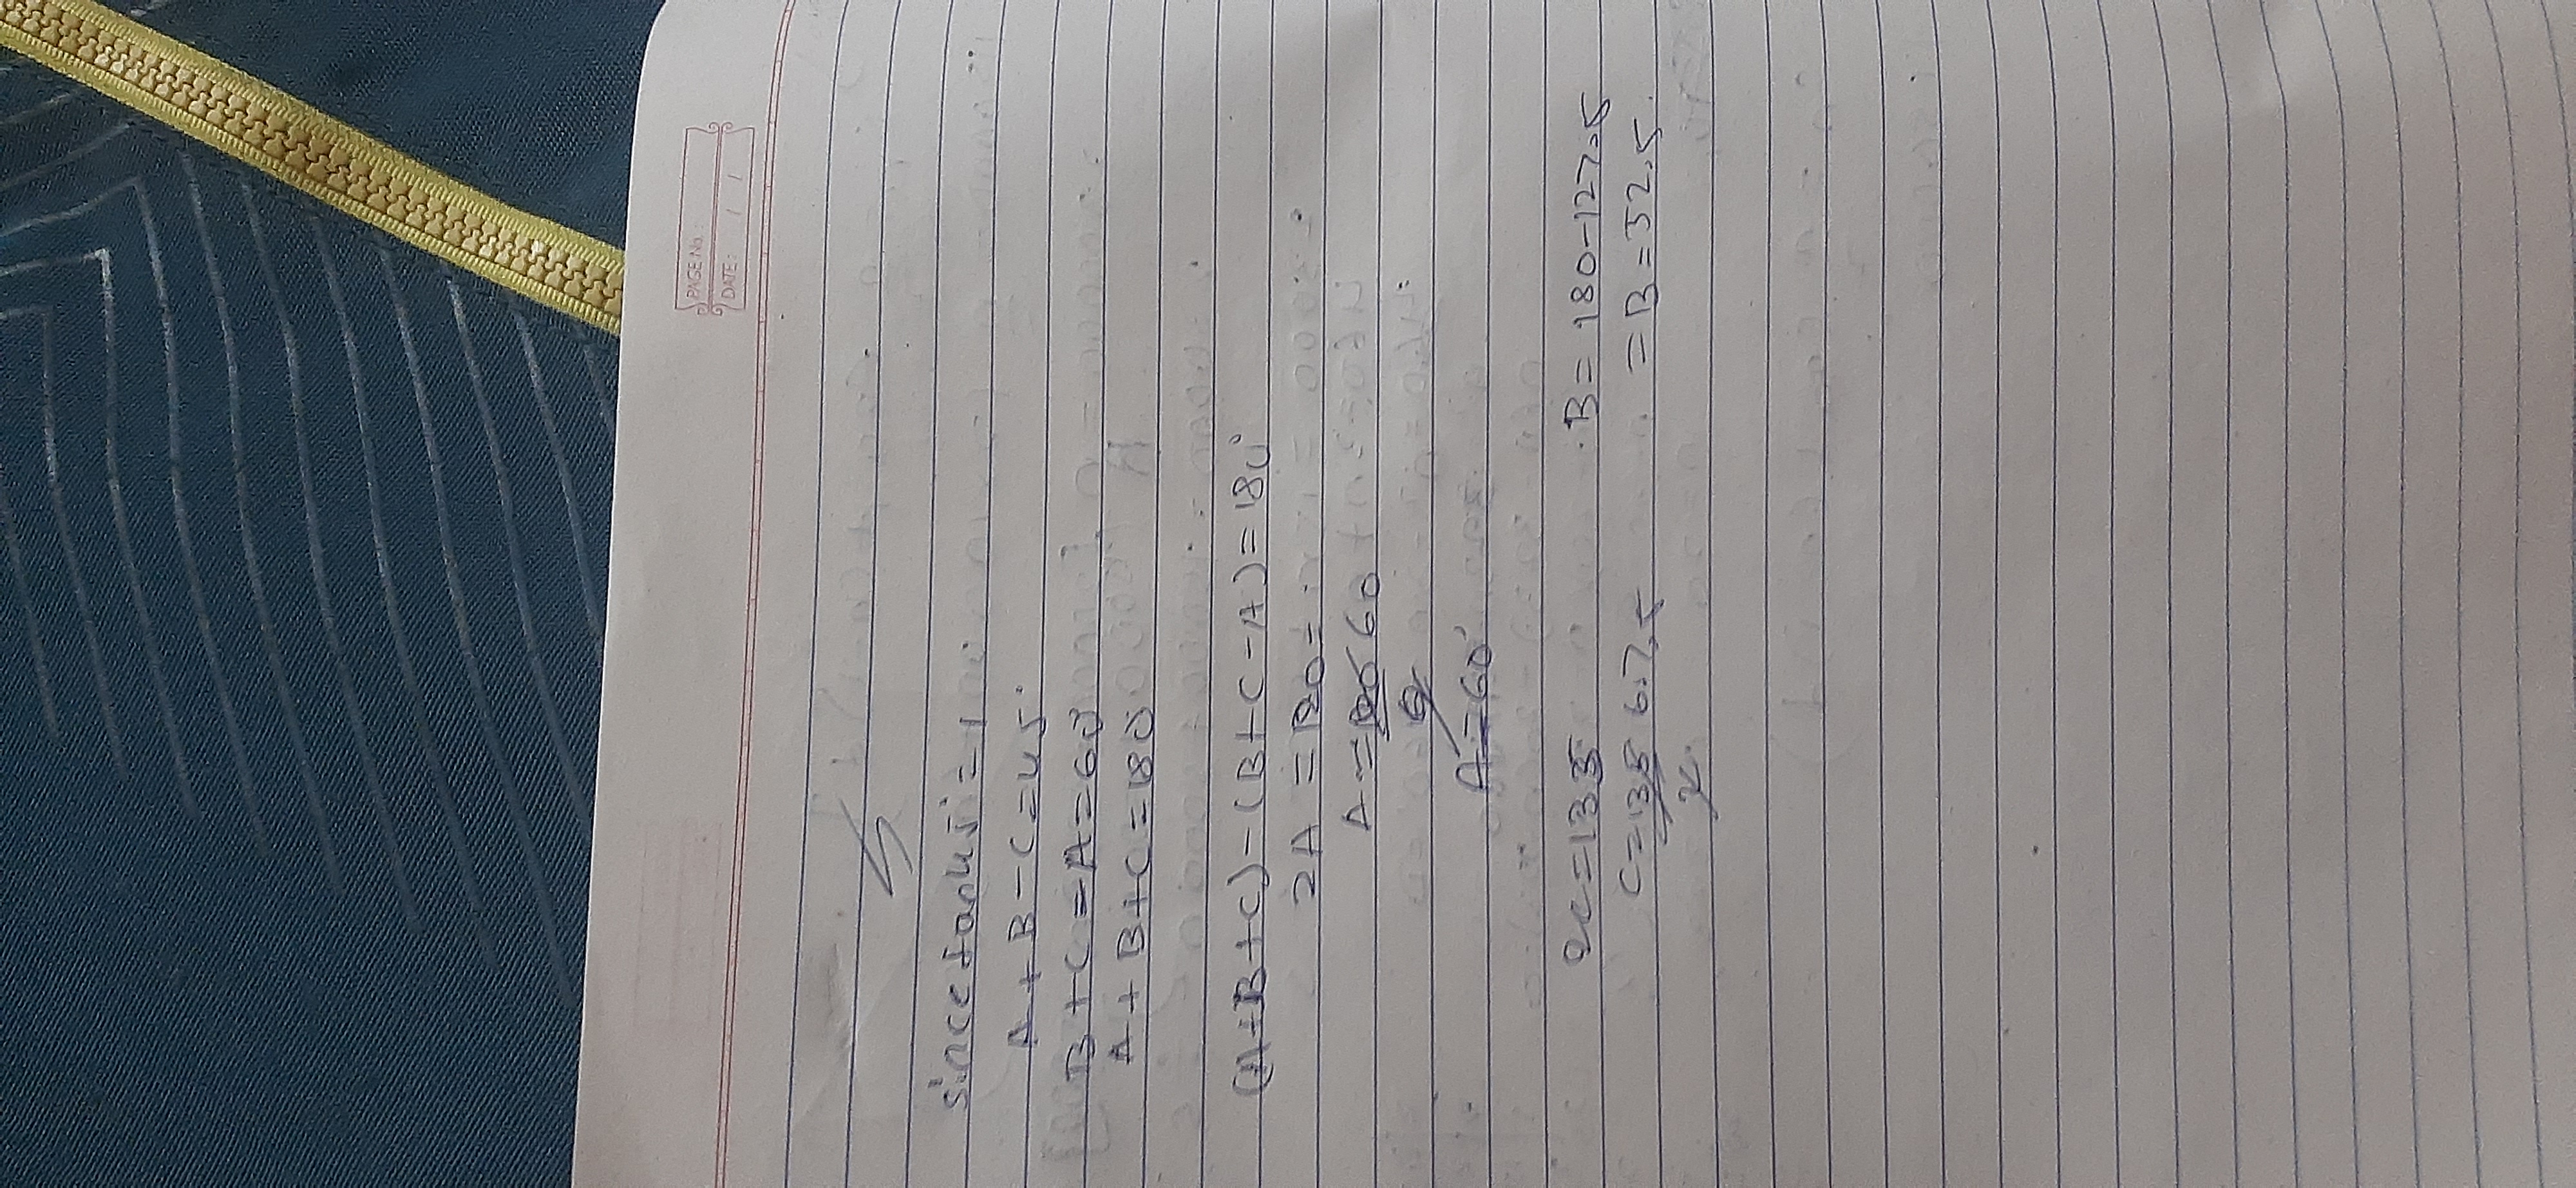 PAGE No.:
DATE: / /
Since tan45 = 1
A + B - C = 45
B + C - A = 60
A + B + C = 180
(A+B+C) - (B+C-A) = 180
2A = 120
A = 120 60
2
A = 60
2C = 135 B = 180 - 127.5
C = 135 67.5 = B = 52.5
2